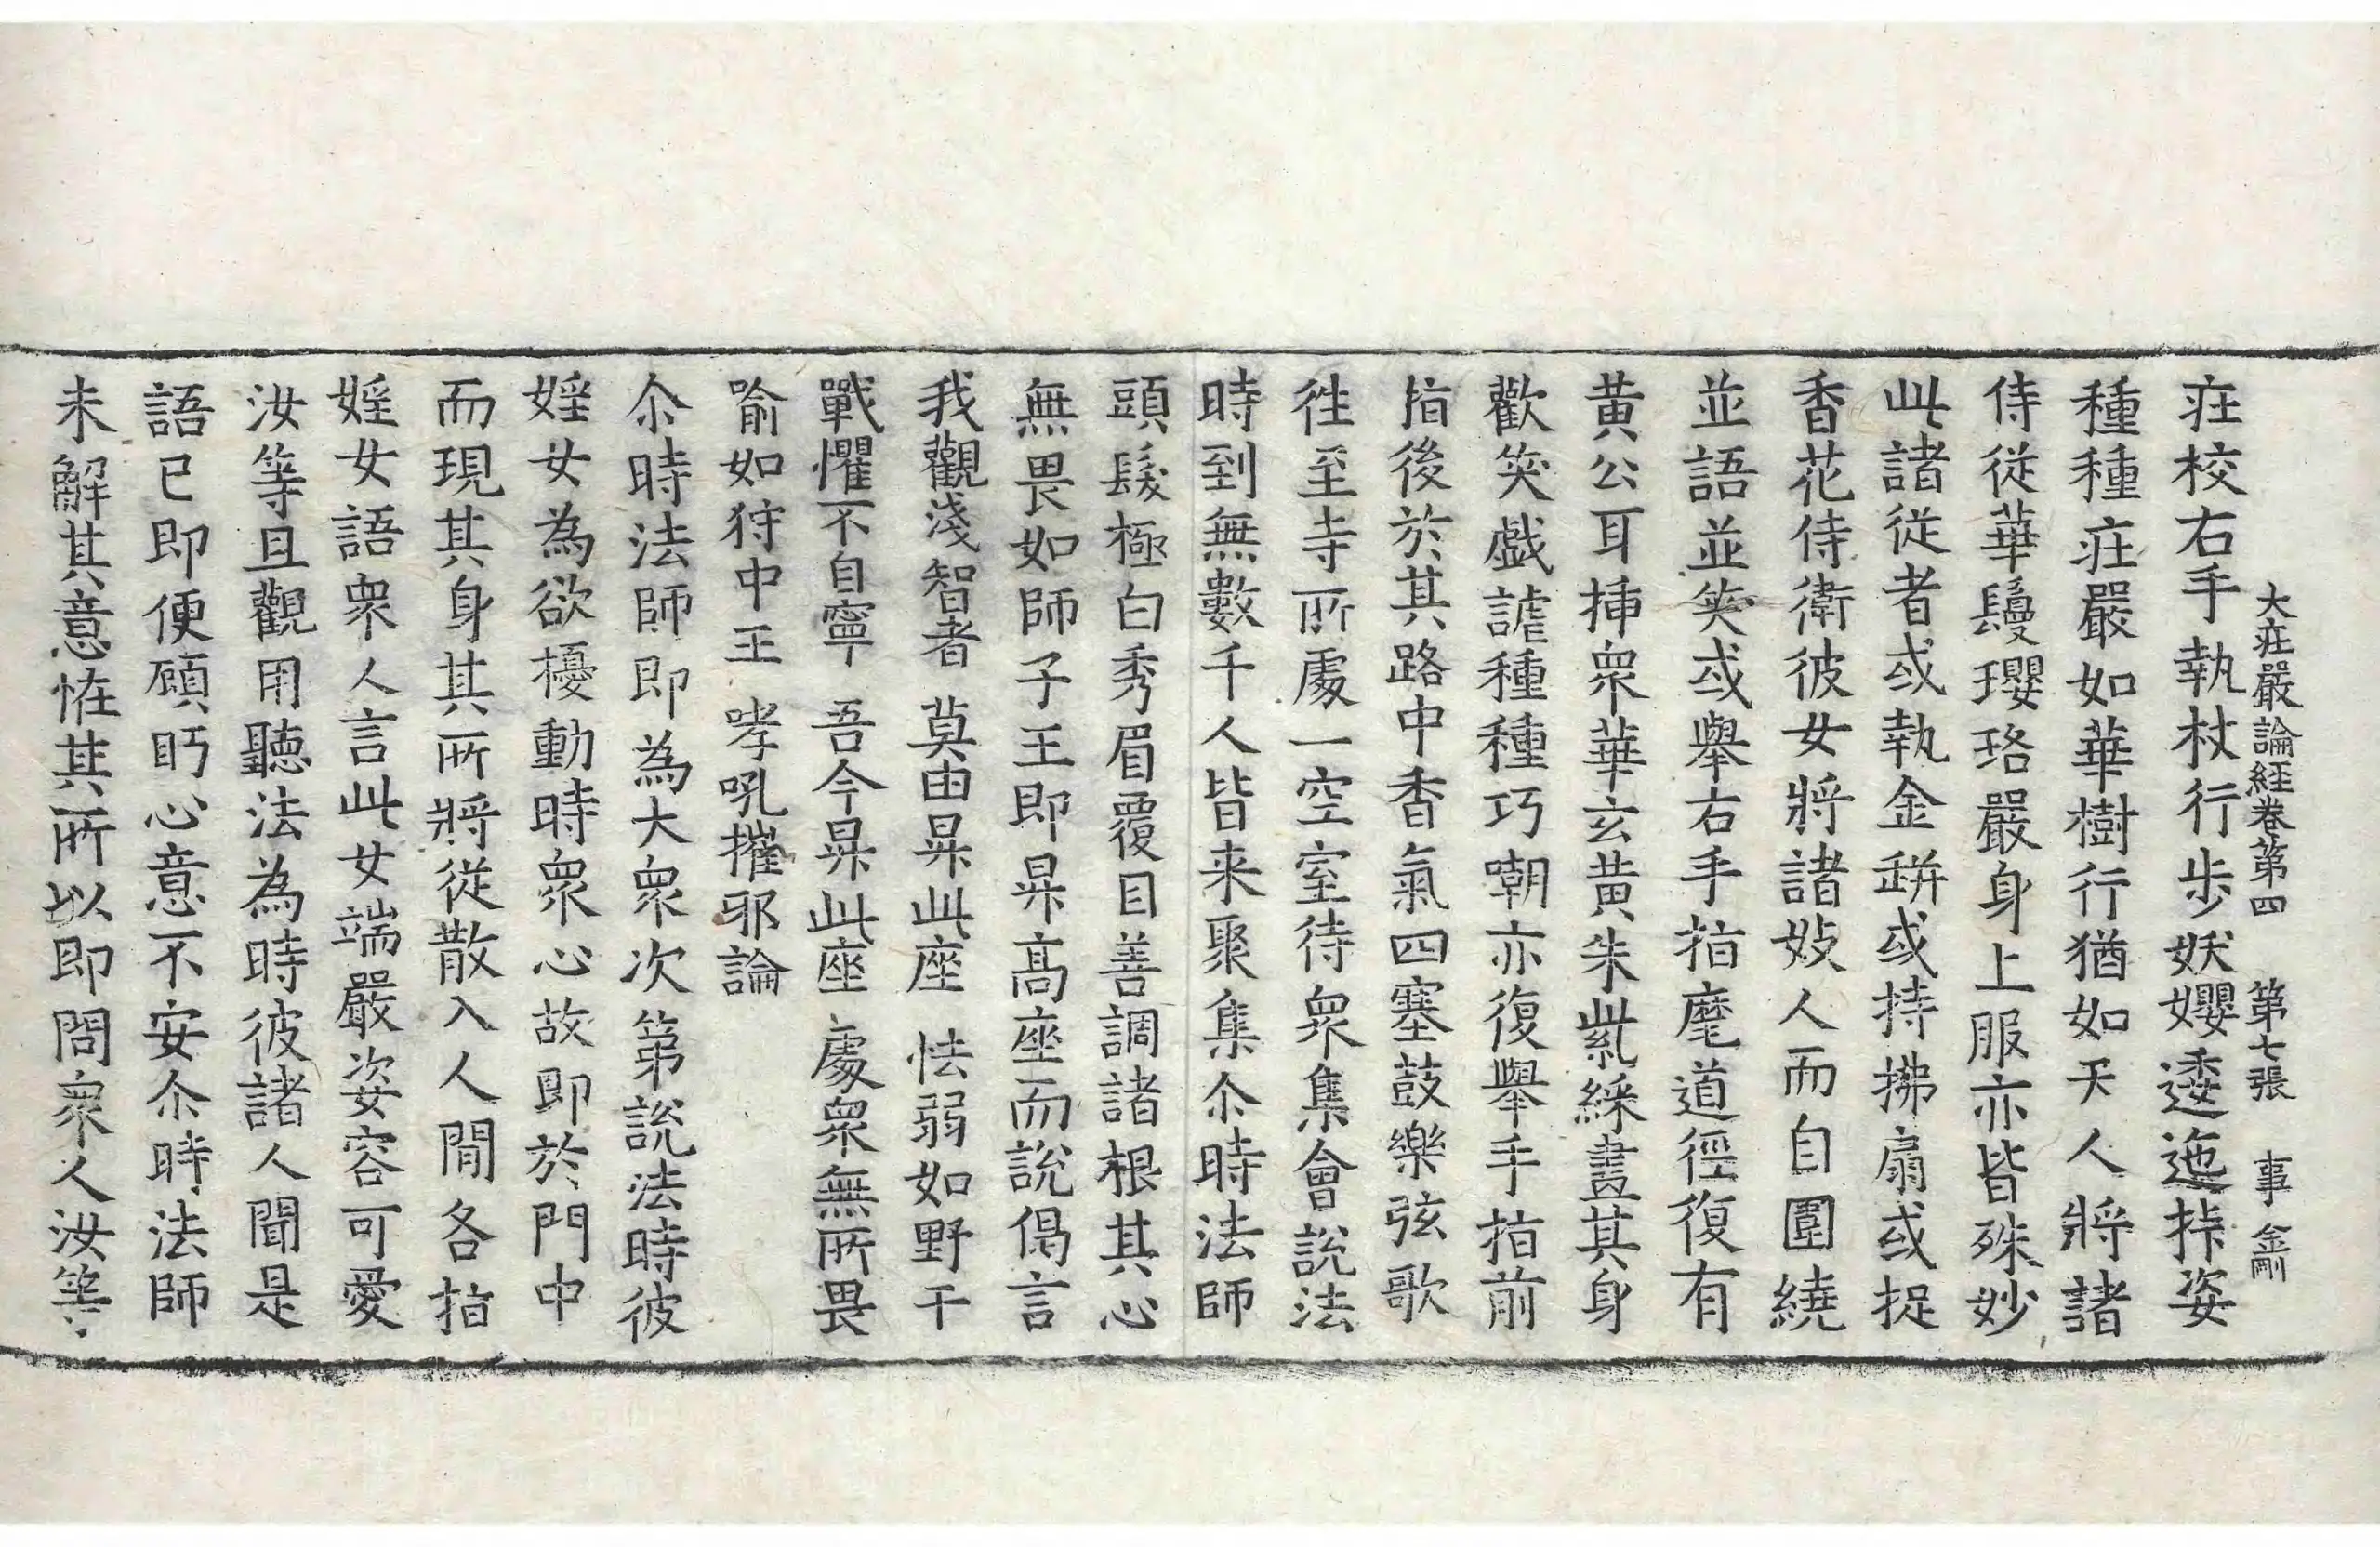 大莊嚴論経卷第四 第七張 事 金剛
庄校右手執杖行步妖㜲逶迤挊姿
種種庄嚴如華樹行猶如天人將諸
侍從華鬘瓔珞嚴身上服亦皆殊妙
此諸從者或執金缾或持拂扇或捉
香花侍衛彼女將諸妓人而自圍繞
並語並笑或舉右手指麾道徑復有
黃公耳揷衆華玄黃朱紫綵畫其身
歡笑戲謔種種巧嘲亦復舉手指前
指後於其路中香氣四塞鼓樂弦歌
徃至寺所處一空室待衆集會說法
時到無數千人皆来聚集尒時法師
頭髮極白秀眉覆目善調諸根其心
無畏如師子王即昇高座而說偈言
我觀淺智者 莫由昇此座 怯弱如野干
戰懼不自寧 吾今昇此座 處衆無所畏
喻如狩中王 哮吼摧邪論
尒時法師即為大衆次第說法時彼
婬女為欲擾動時衆心故即於門中
而現其身其所將從散入人閒各指
婬女語衆人言此女端嚴姿容可愛
汝等且觀用聽法為時彼諸人聞是
語已即便顧眄心意不安尒時法師
未解其意恠其所以即問衆人汝等